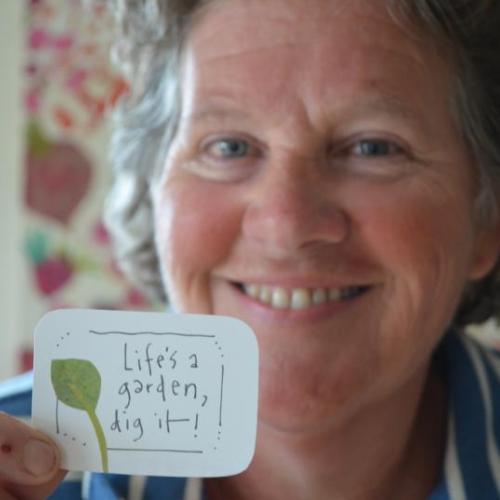 Life's a
garden,
dig it!